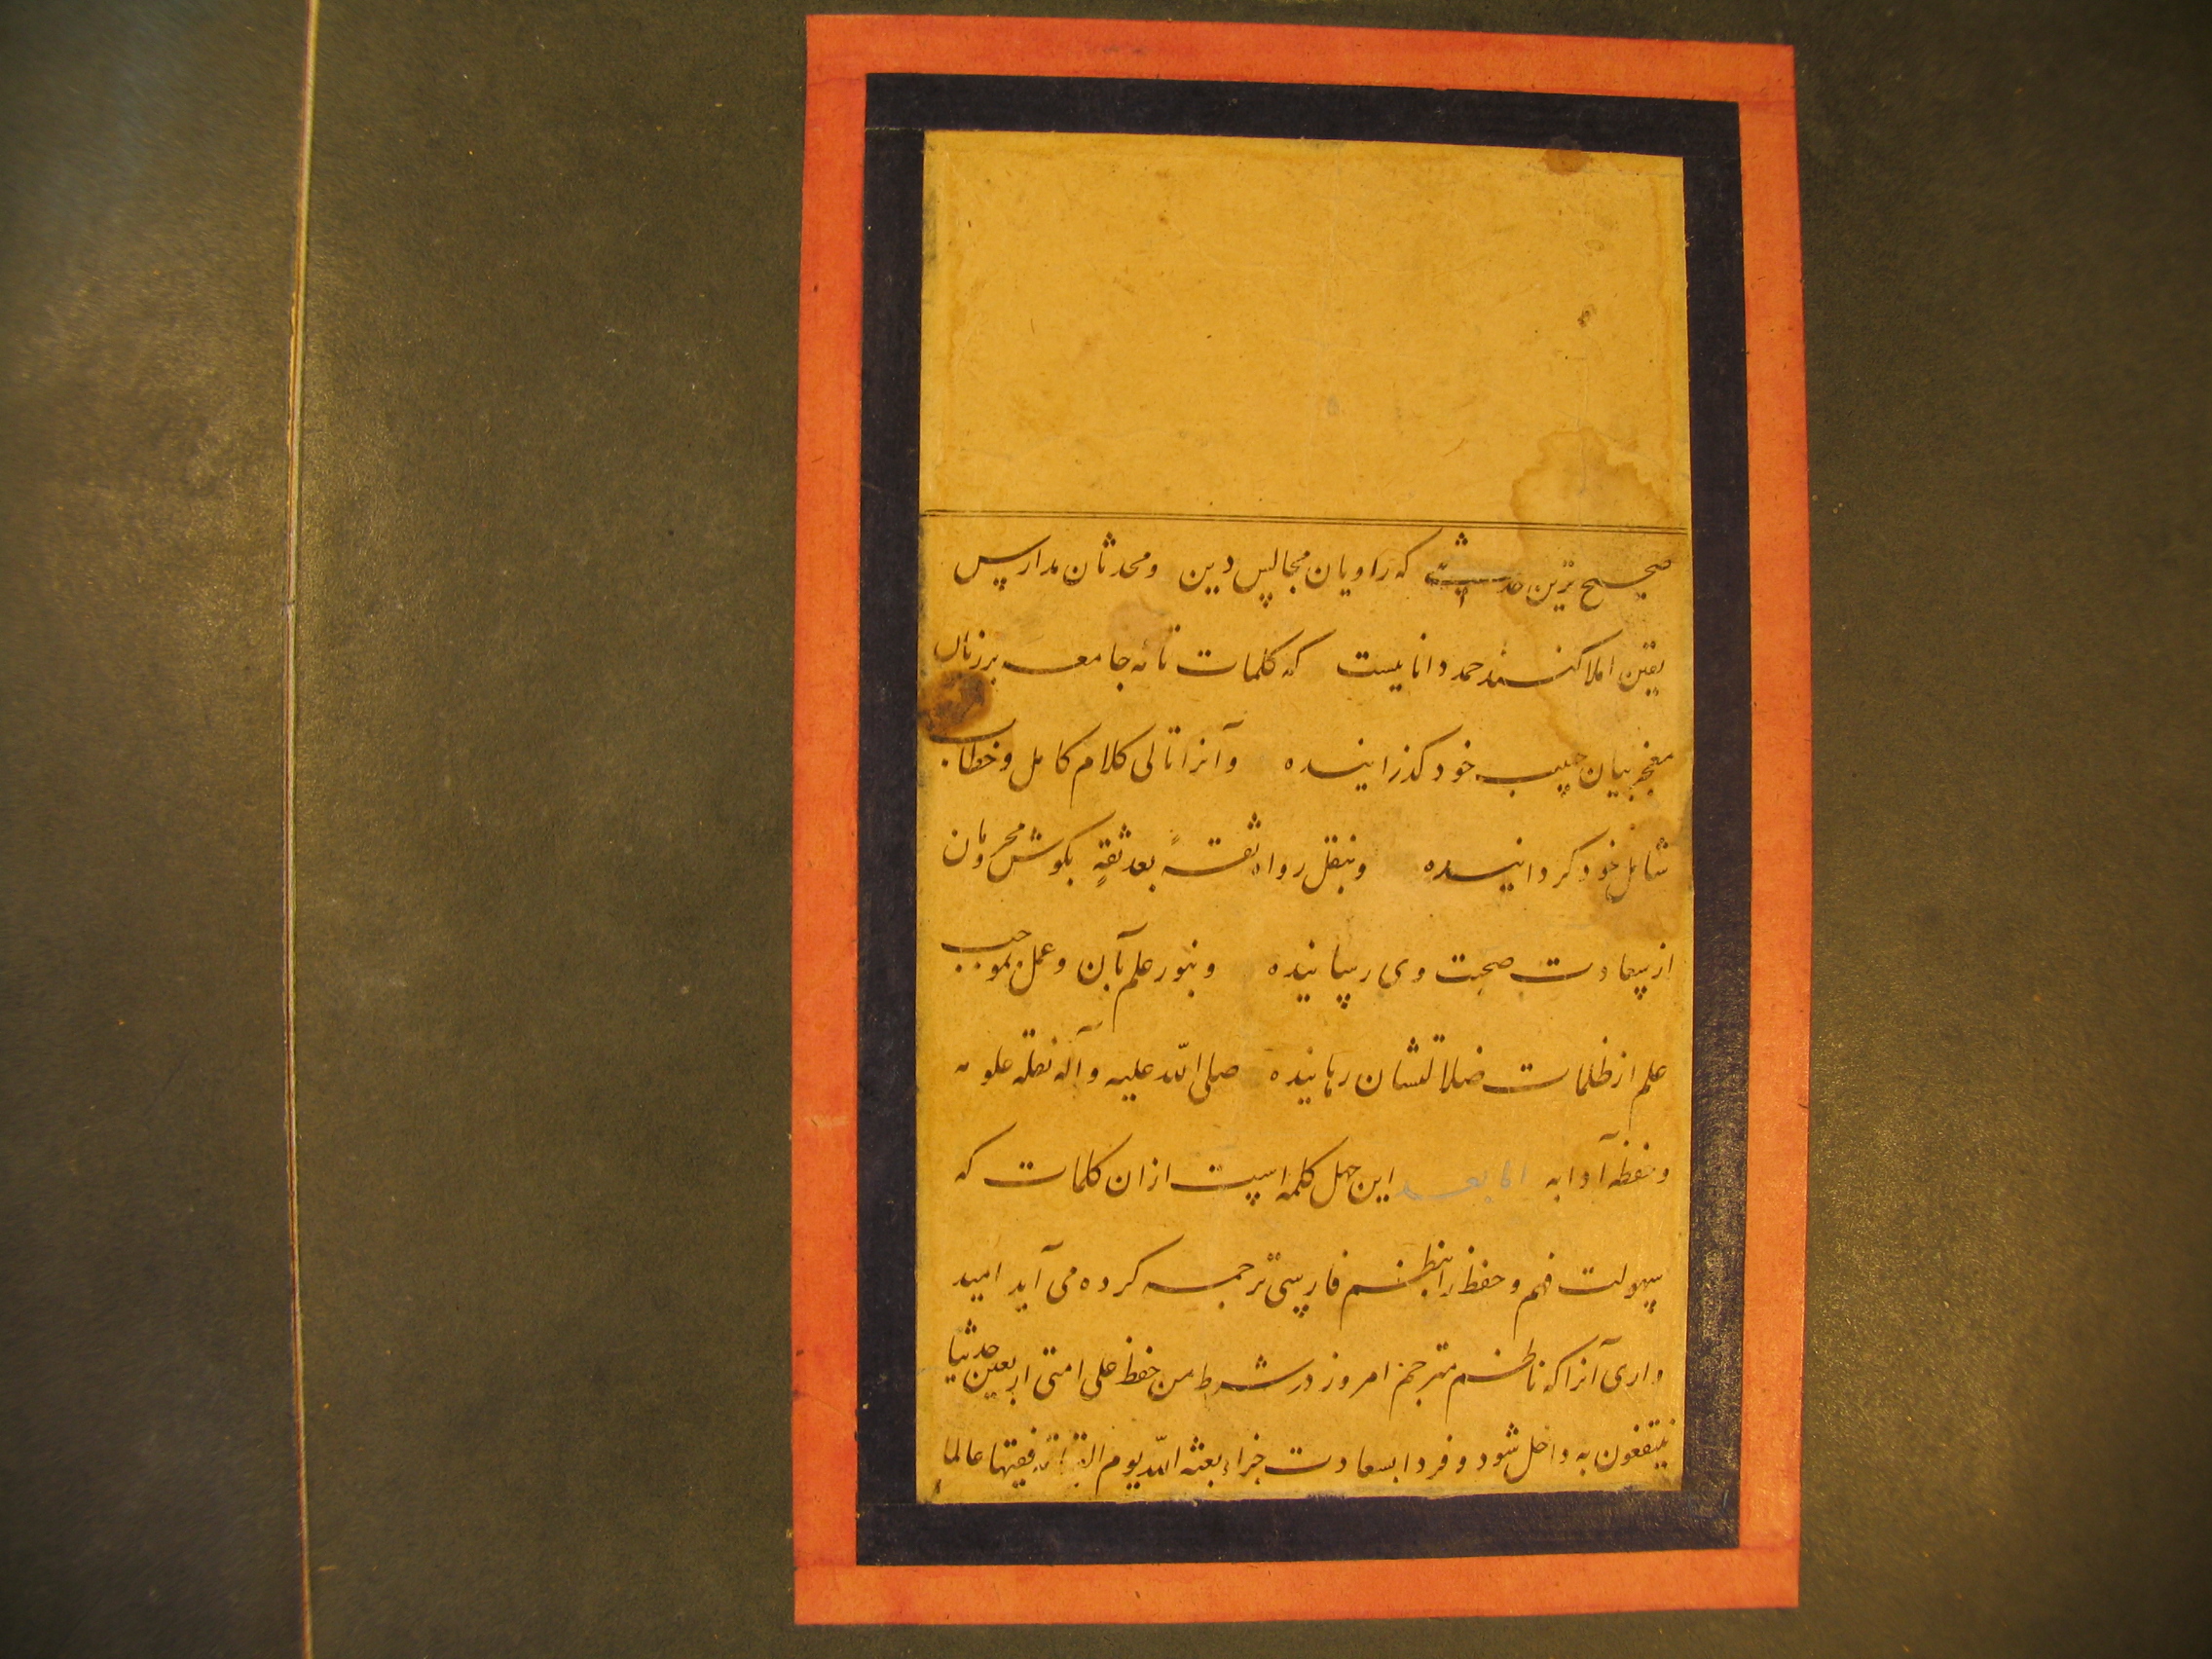 صحیح ترین حدیثی که راویان مجالس دین و محدثان مدارس
یقین املا کنند حمد دانائیست که کلمات تامه جامعه بر زبان
معجز بیان حبیب خود گذرانیده و آنرا تالی کلام کامل و خطاب
شامل خود گردانیده و بنقل رواه ثقة بعد ثقةٍ بگوش محرومان
از سعادت صحبت وی رسانیده و بنور علم بآن و عمل بموجب
علم از ظلمات ضلالتشان رهانیده صلی الله علیه و آله نقلة علومه
و حفظة آدابه اما بعد این چهل کلمه است از ان کلمات که
سهولت فهم و حفظ را بنظم فارسی ترجمه کرده می آید امید
واری آنرا که ناظم مترجم امروز در شرط من حفظ علی امتی اربعین حدیثا
ینتفعون به داخل شود و فردا بسعادت جزاء بعثه الله یوم القیامة فقیها عالما